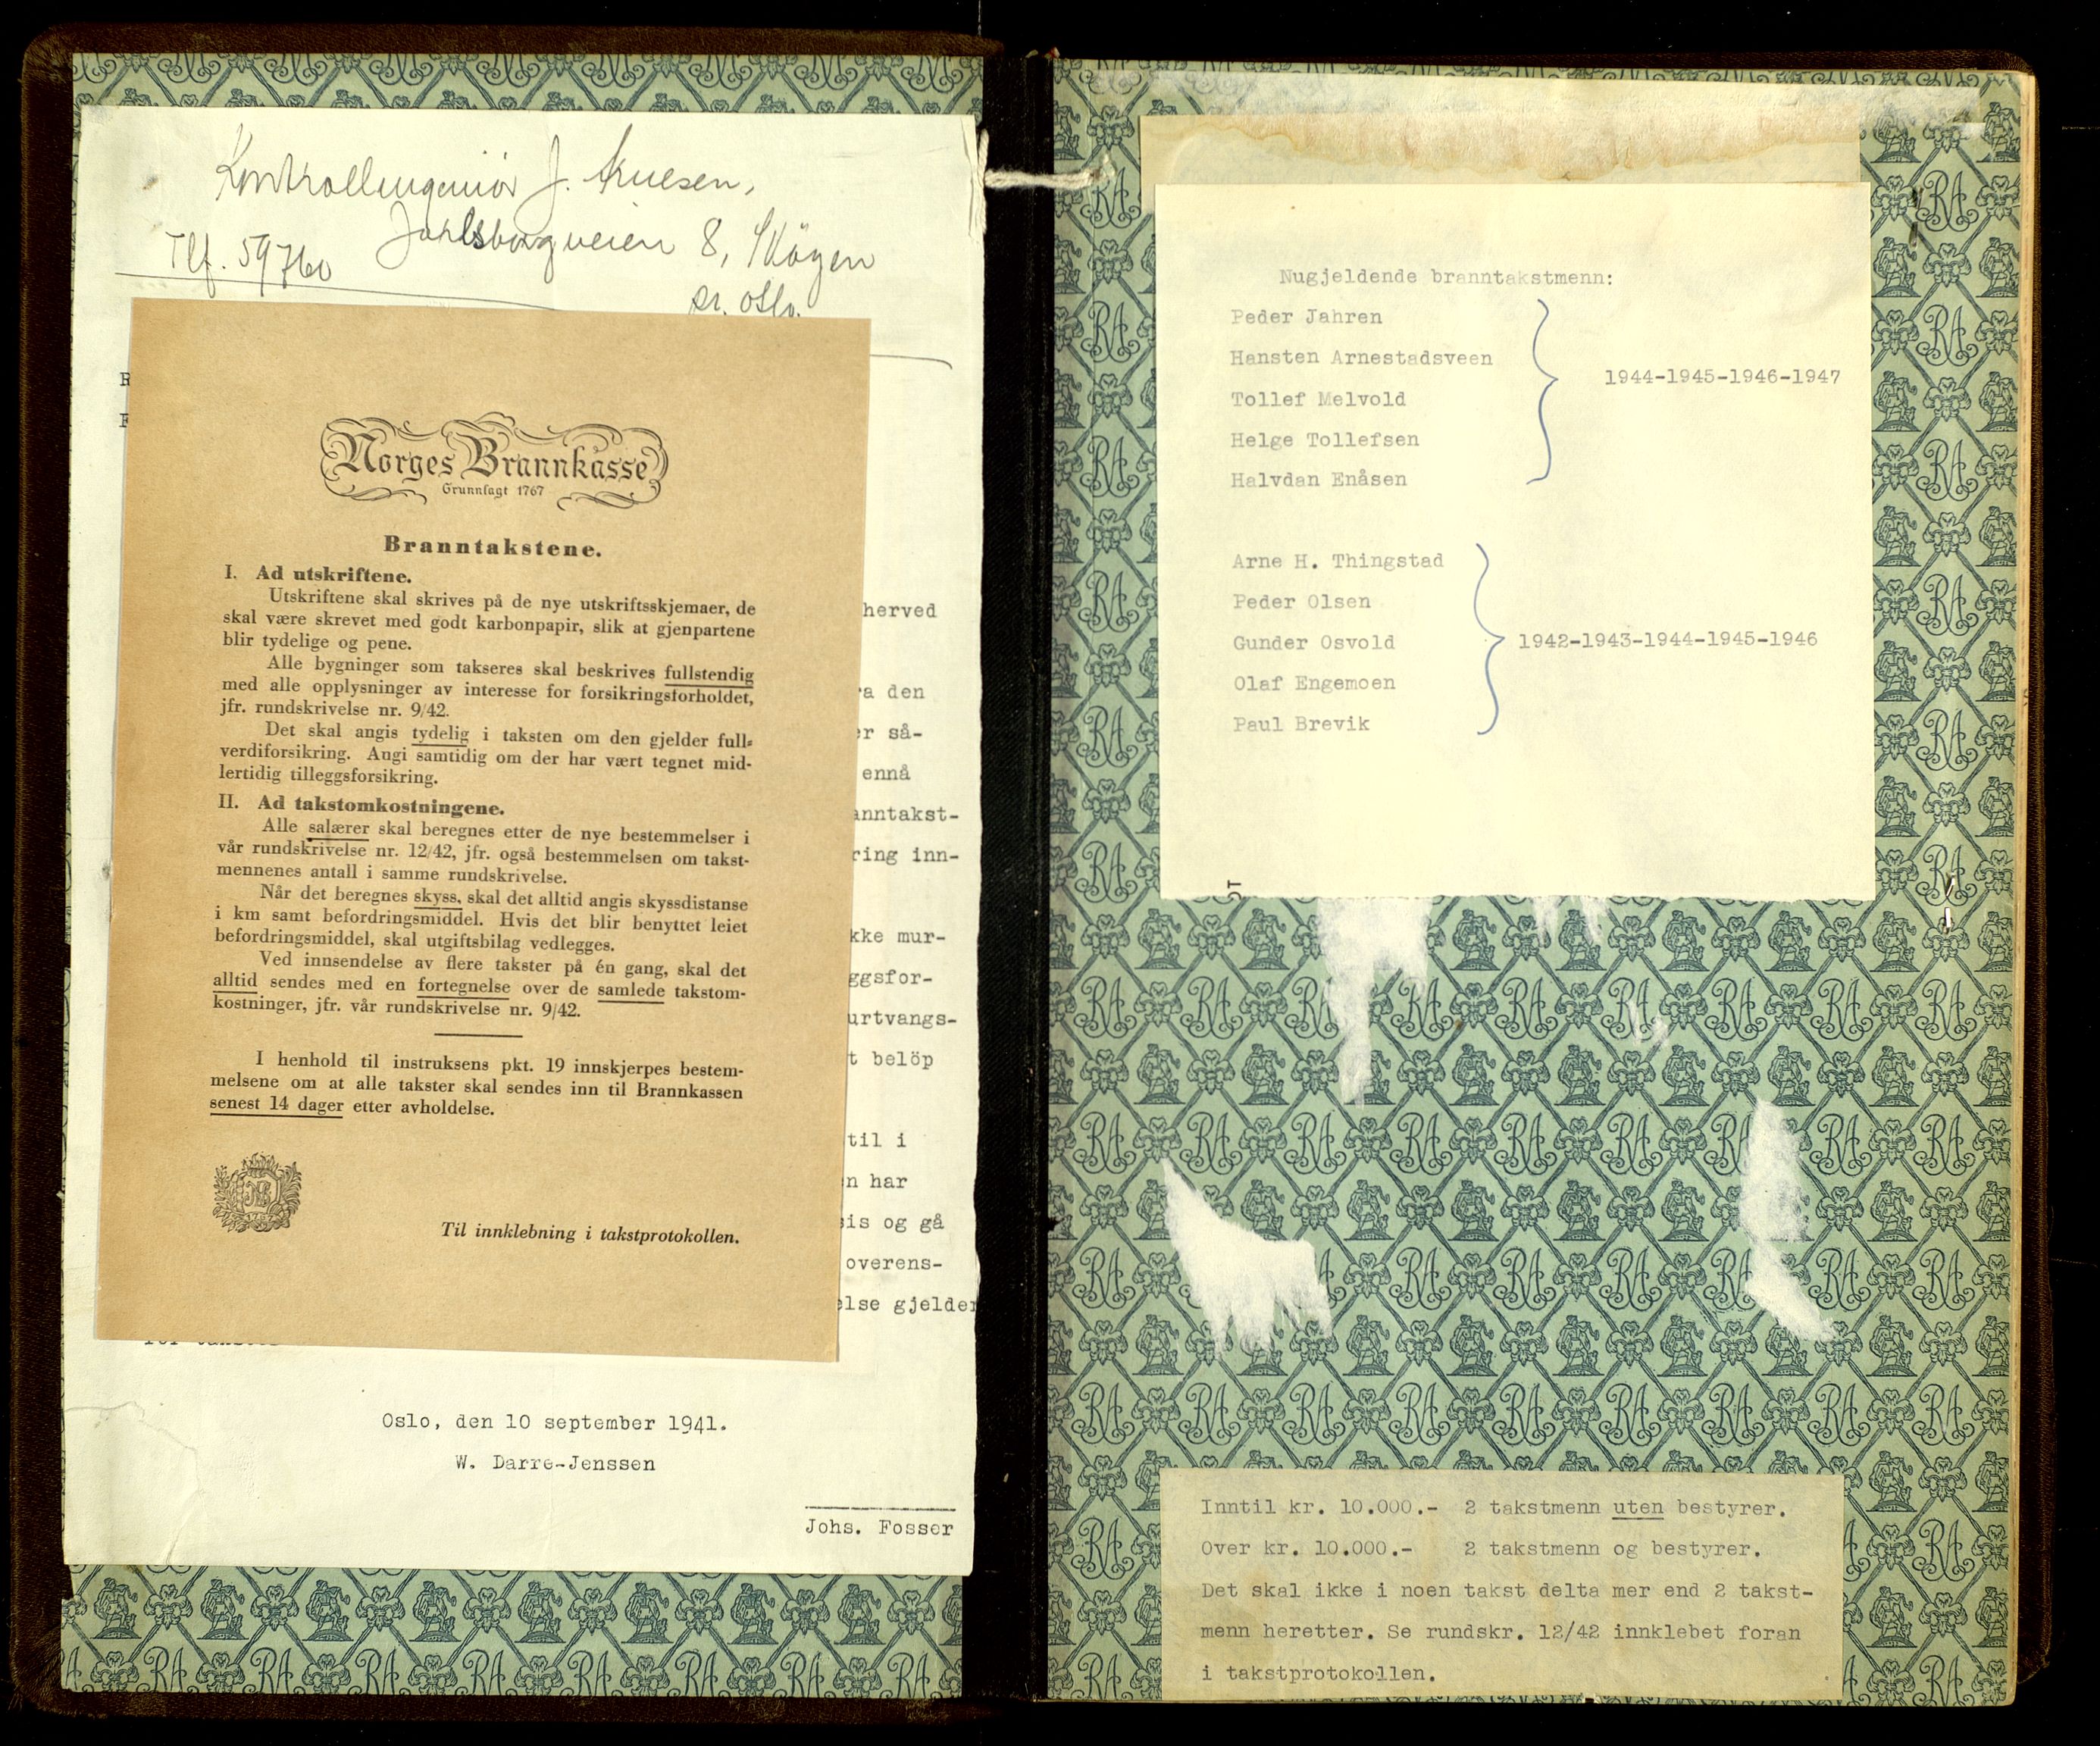 Kontrollingeniör J.
Tlf. 59760
Jarlsborgveien 8, Skögen
pr. Oslo.
Norges Brannkasse
Grunnlagt 1767
Branntakstene.
I. Ad utskriftene.
Utskriftene skal skrives på de nye utskriftsskjemaer, de
skal være skrevet med godt karbonpapir, slik at gjenpartene
blir tydelige og pene.
Alle bygninger som takseres skal beskrives fullstendig
med alle opplysninger av interesse for forsikringsforholdet,
jfr. rundskrivelse nr. 9/42.
Det skal angis tydelig i taksten om den gjelder full-
verdiforsikring. Angi samtidig om der har vært tegnet mid-
lertidig tilleggsforsikring.
II. Ad takstomkostningene.
Alle salærer skal beregnes etter de nye bestemmelser i
vår rundskrivelse nr. 12/42, jfr. også bestemmelsen om takst-
mennenes antall i samme rundskrivelse.
Når det beregnes skyss, skal det alltid angis skyssdistanse
i km samt befordringsmiddel. Hvis det blir benyttet leiet
befordringsmiddel, skal utgiftsbilag vedlegges.
Ved innsendelse av flere takster på én gang, skal det
alltid sendes med en fortegnelse over de samlede takstom-
kostninger, jfr. vår rundskrivelse nr. 9/42.
I henhold til instruksens pkt. 19 innskjerpes bestem-
melsene om at alle takster skal sendes inn til Brannkassen
senest 14 dager etter avholdelse.
Til innklebning i takstprotokollen.
herved
a den
er så-
ennå
anntakst-
ring inn-
kke mur-
ggsfor-
urtvangs-
t belöp
til i
n har
is og gå
overens-
else gjelder
Oslo, den 10 september 1941.
W. Darre-Jenssen
Johs. Fosser
Nugjeldende branntakstmenn:
Peder Jahren
Hansten Arnestadsveen
Tollef Melvold
Helge Tollefsen
Halvdan Enåsen
1944-1945-1946-1947
Arne H. Thingstad
Peder Olsen
Gunder Osvold
Olaf Engemoen
Paul Brevik
1942-1943-1944-1945-1946
Inntil kr. 10.000.- 2 takstmenn uten bestyrer.
Over kr. 10.000.- 2 takstmenn og bestyrer.
Det skal ikke i noen takst delta mer end 2 takst-
menn heretter. Se rundskr. 12/42 innklebet foran
i takstprotokollen.